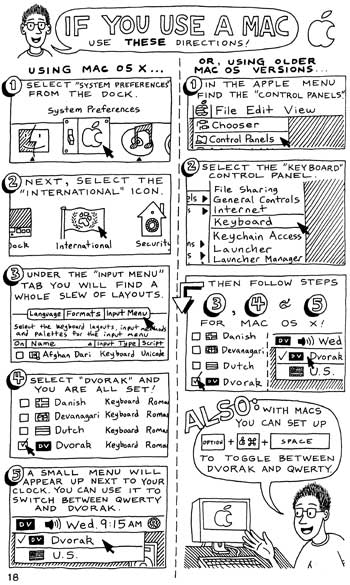 IF YOU USE A MAC
USE THESE DIRECTIONS!
USING MAC OS X...
1 SELECT "SYSTEM PREFERENCES"
FROM THE DOCK.
System Preferences
2 NEXT, SELECT THE
"INTERNATIONAL" ICON.
Dock International Security
3 UNDER THE "INPUT MENU"
TAB YOU WILL FIND A
WHOLE SLEW OF LAYOUTS.
Language Formats Input Menu
Select the keyboard layouts, input
and palettes for the input menu
On Name Input Type Script
Afghan Dari Keyboard Unicode
4 SELECT "DVORAK" AND
YOU ARE ALL SET!
Danish Keyboard Roma
Devanagari Keyboard Roma
Dutch Keyboard Roma
DV Dvorak Keyboard Roma
5 A SMALL MENU WILL
APPEAR UP NEXT TO YOUR
CLOCK. YOU CAN USE IT TO
SWITCH BETWEEN QWERTY
AND DVORAK.
DV Wed. 9:15 AM
✓ DV Dvorak
U.S.
18
OR, USING OLDER
MAC OS VERSIONS...
1 IN THE APPLE MENU
FIND THE "CONTROL PANELS"
File Edit View
Chooser
Control Panels
2 SELECT THE "KEYBOARD"
CONTROL PANEL.
File Sharing
els General Controls
Internet
Keyboard
Keychain Access
Launcher
Launcher Manager
THEN FOLLOW STEPS
3, 4 & 5
FOR MAC OS X!
Danish
Devanagari
Dutch
DV Dvorak
DV Wed
✓ DV Dvorak
U.S.
ALSO: WITH MACS
YOU CAN SET UP
OPTION + ⌘ + SPACE
TO TOGGLE BETWEEN
DVORAK AND QWERTY.